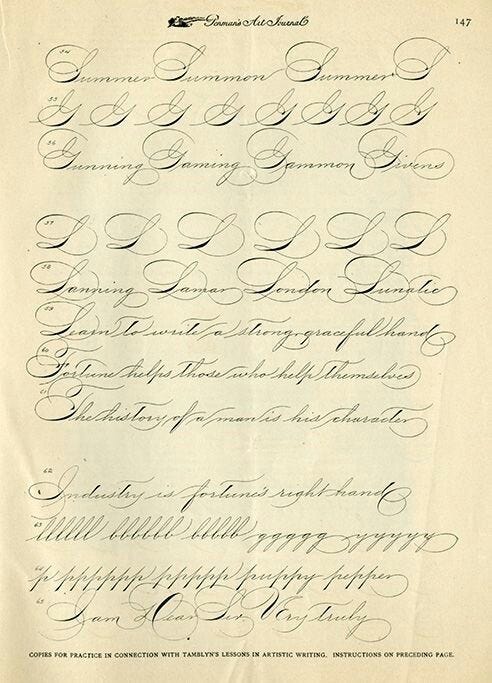 Penman's Art Journal 147
54 Summer Summon Summer S
55 G G G G G G G G
56 Gunning Gaming Gammon Givens
57 L L L L L L
58 Lanning Lamar London Lunatic
59 Learn to write a strong, graceful hand
60 Fortune helps those who help themselves
61 The history of a man is his character
62 Industry is fortune's right hand
63 lllllll bbbbbb bbbbb ggggg yyyyyy
64 p pppppp ppppp puppy pepper
65 I am Dear Sir Very truly
COPIES FOR PRACTICE IN CONNECTION WITH TAMBLYN'S LESSONS IN ARTISTIC WRITING. INSTRUCTIONS ON PRECEDING PAGE.